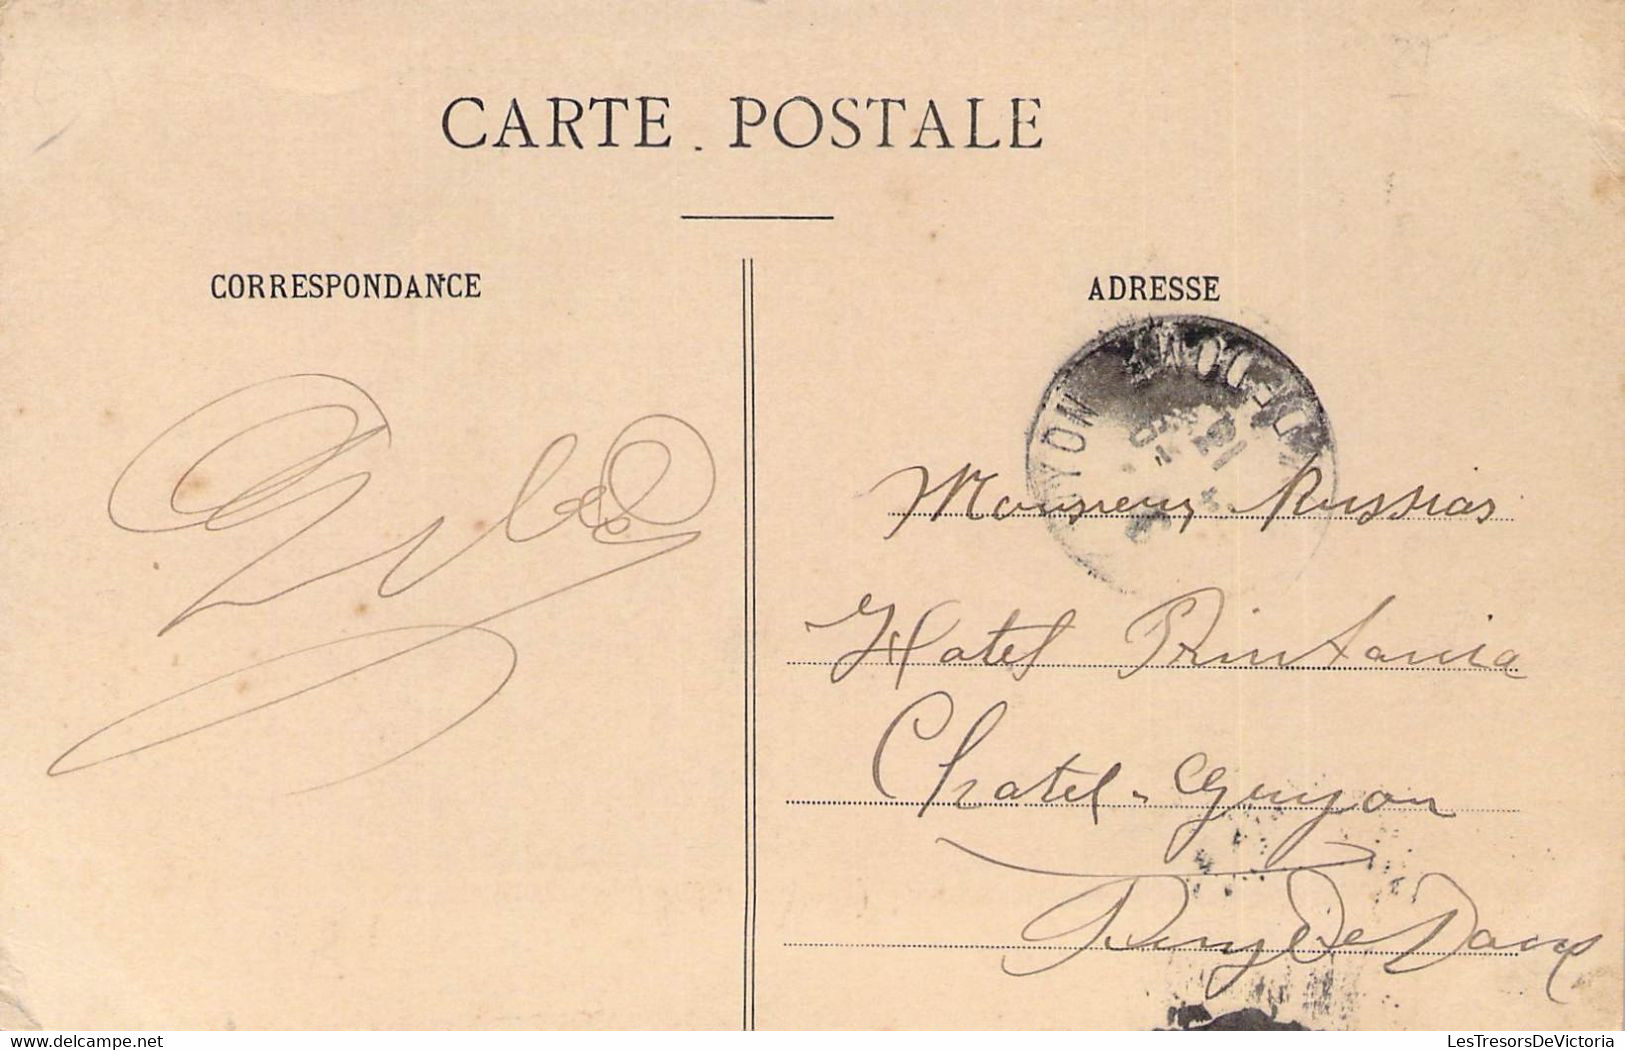 CARTE POSTALE
CORRESPONDANCE
ADRESSE
YON DE DOME
Monsieur Russias
Hotel Printania
Chatel-Guyon
Puy De Dome
LesTresorsDeVictoria
delcampe.net